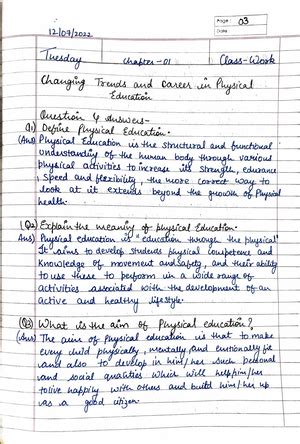 Page: 03
Date:
12/09/2022
Tuesday chapter-01 Class-Work
Changing Trends and Career in Physical
Education
Question & Answers-
Q1) Define Physical Education.
(Ans) Physical Education is the structural and functional
understanding of the human body through various
physical activities to increase its strength, edurance
, speed and flexibility, the more correct way to
look at it extends beyond the growth of Physical
health.
(Q2) Explain the meaning of physical Education.
Ans) Physical education is "education through the physical"
It aims to develop students physical competence and
knowledge of movement and safety, and their ability
to use these to perform in a wide range of
activities associated with the development of an
active and healthy lifestyle.
(Q3) What is the aim of Physical education?
(Ans) The aim of physical education is that to make
every child physically, mentally, and emtionally fit
and also to develop in him/her such personal
and social qualities which will help him/her
to live happily with others and build him/her up
as a good citizen.